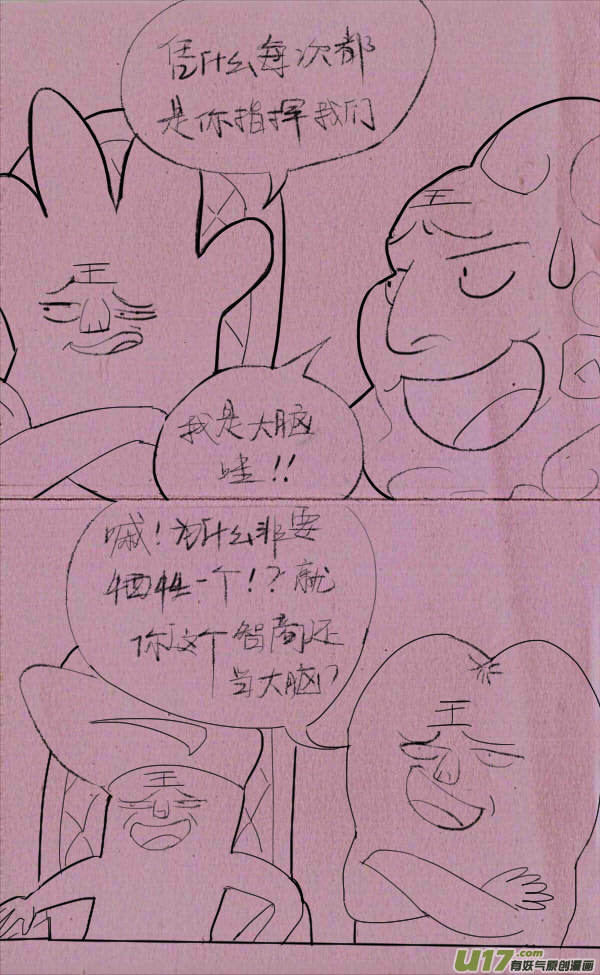 凭什么每次都
是你指挥我们
王
王
我是大脑
哇!!
嘁!为什么非要
牺牲一个!?就
你这个智商还
当大脑?
王
王
U17.com
有妖气原创漫画